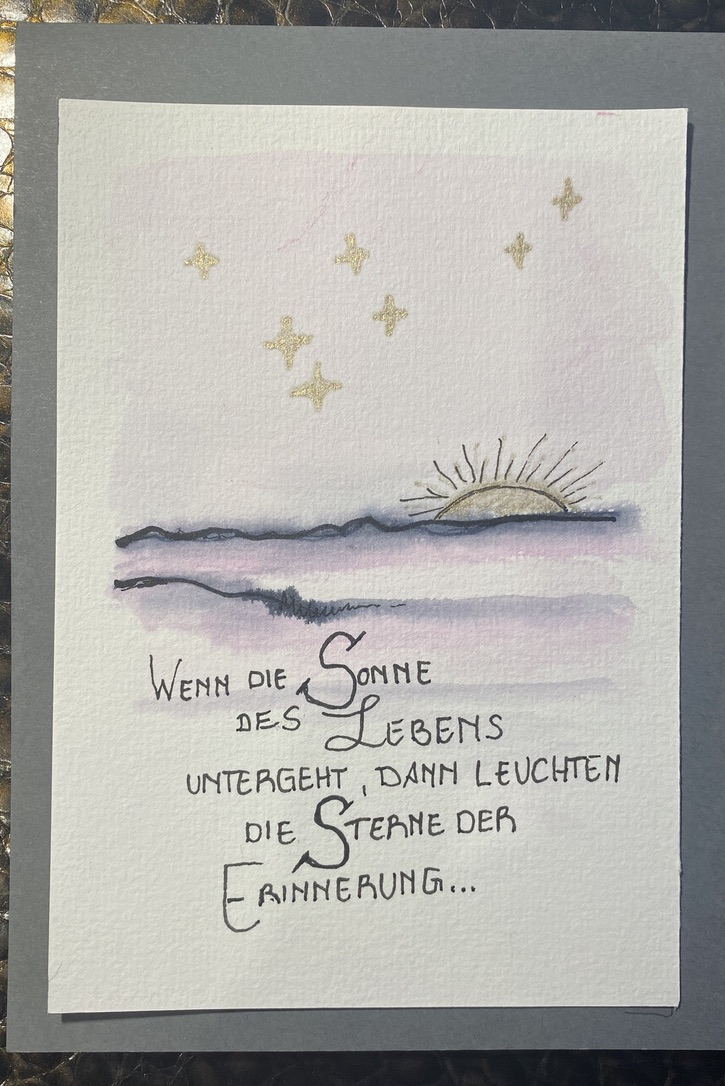 WENN DIE SONNE
DES LEBENS
UNTERGEHT, DANN LEUCHTEN
DIE STERNE DER
ERINNERUNG...